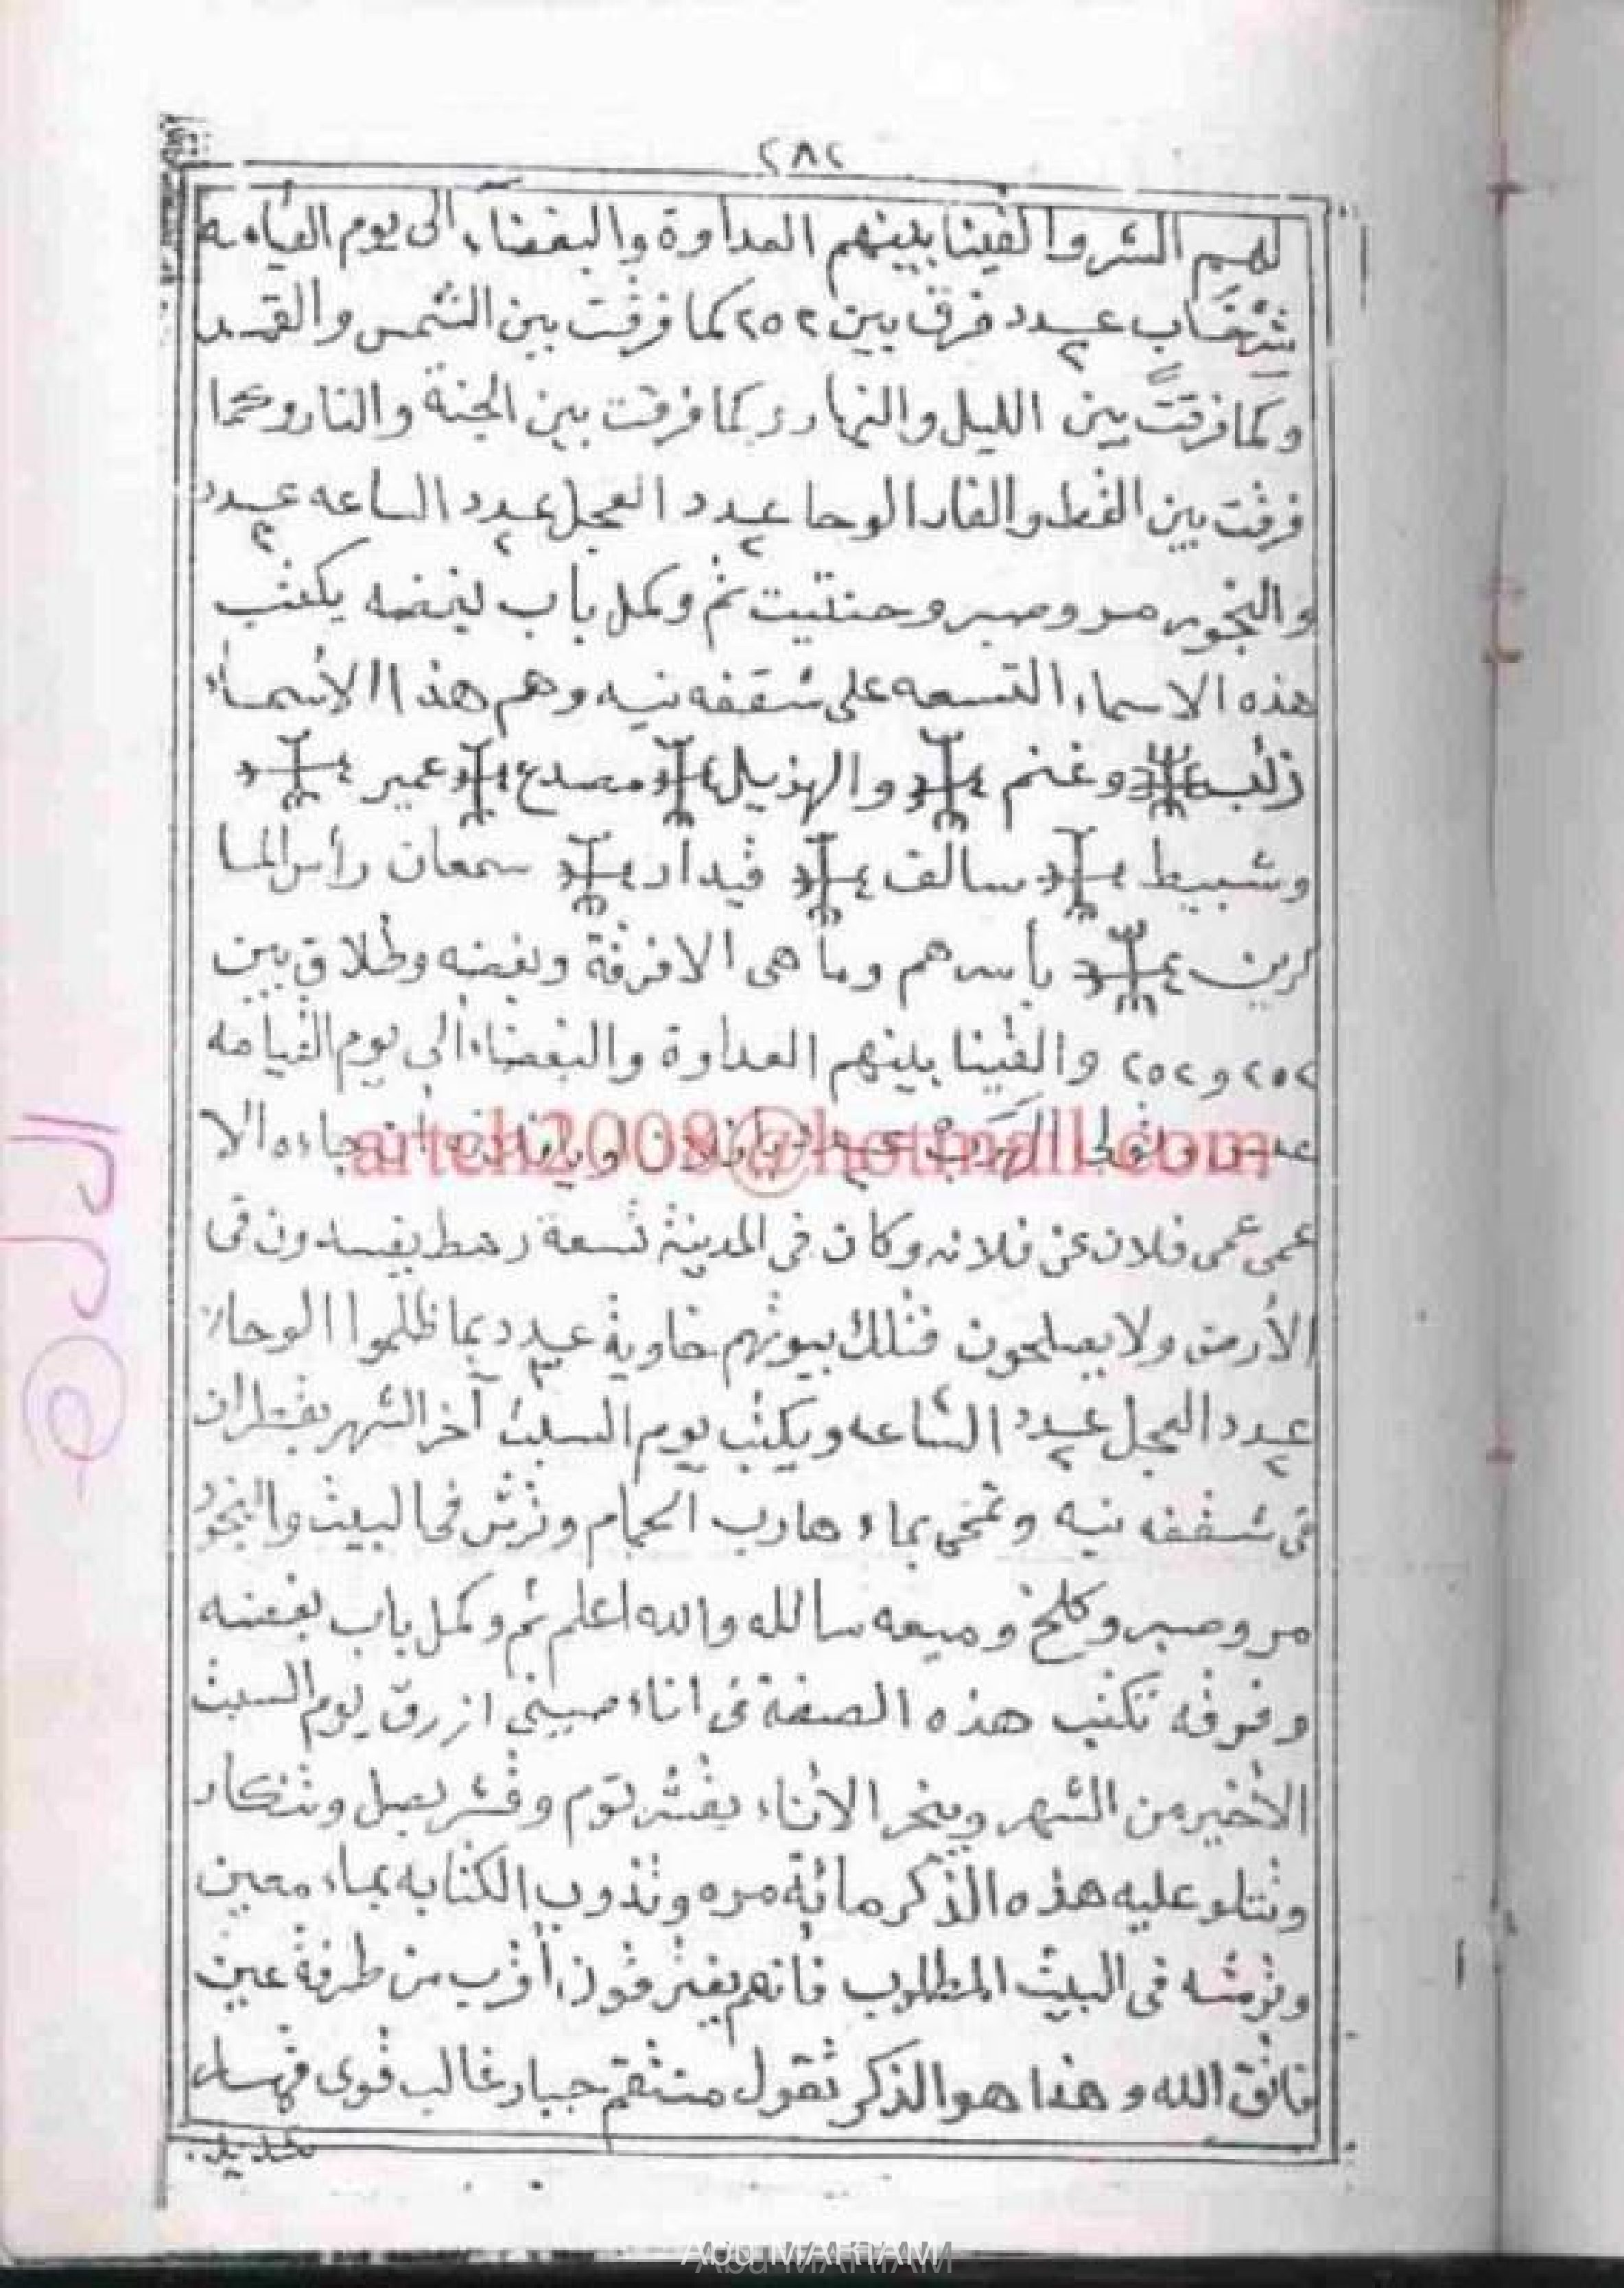 ٢٨٢
لهم الشر والقينا بينهم العداوة والبغضاء الى يوم القيامه
شهاب عدد ٢ فرق بين ٢٥٢ كما فرقت بين الشمس والقمر
وكما فرقت بين الليل والنهار وكما فرقت بين الجنة والنار وكما
فرقت بين القط والفار الوحا عدد ٢ العجل عدد ٢ الساعه عدد ٢
والبخور مر وصبر وحنتيت تم وكمل باب لبغضه يكتب
هذه الاسماء التسعه على شقفه نيه وهم هذا الأسماء
وغنم والهزيل مصدع عمير
وشبيط سالف قيدار سمعان رأس الما
بأسرهم وما هى الا فرقة وبغضه وطلاق بين
٢٥٢ و ٢٥٢ والقينا بينهم العداوة والبغضاء الى يوم القيامه
arteh2009@hotmail.com
جاءه الا
عمى عمى فلان عن فلانه وكان فى المدينة تسعة رهط يفسدون فى
الأرض ولا يصلحون فتلك بيوتهم خاوية عدد ٣ بما ظلموا الوحا
عدد ٢ العجل عدد ٢ الساعه ويكتب يوم السبت آخر الشهر بقطران
فى شقفه نيه وتمحى بماء هارب الحمام وترش فى البيت والبخور
مر وصبر وكلخ وميعه سائله والله اعلم تم وكمل باب بغضه
وفرقه تكتب هذه الصفة فى اناء صينى ازرق يوم السبت
الأخير من الشهر ويبخر الأناء بقشر توم وقشر بصل وتنكار
وتتلو عليه هذه الذكر مائة مره وتذوب الكتابه بماء معين
وترشه فى البيت المطلوب فأنهم يفترقون أقرب من طرفة عين
فاتق الله وهذا هو الذكر تقول منتقم جبار غالب قوى قهار
Abu MARIAM